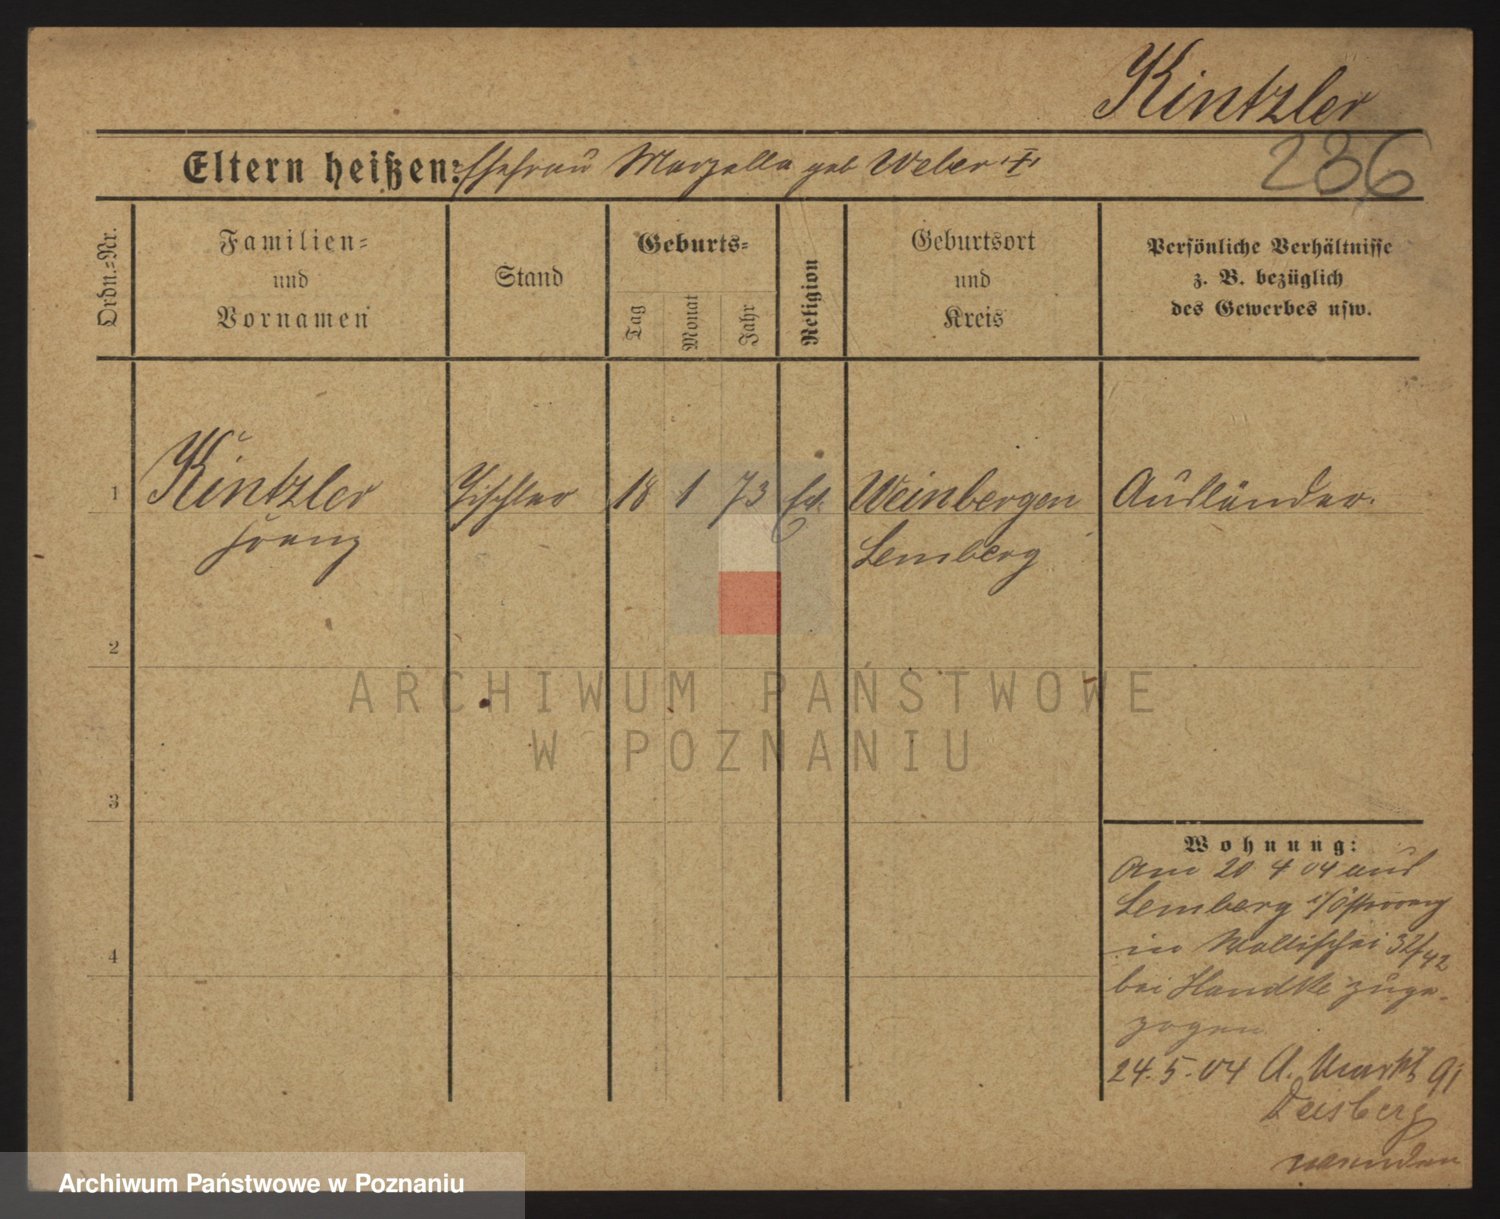 Kintzler
236
Eltern heißen: Ehefrau Marzella geb Weber "†"
Ordn.-Nr.
Familien-
und
Vornamen
Stand
Geburts-
Tag
Monat
Jahr
Religion
Geburtsort
und
Kreis
Persönliche Verhältnisse
z. B. bezüglich
des Gewerbes usw.
1 Kintzler Tischler 18 1 73 Ev. Weinbergen Ausländer.
Franz Lemberg
2
ARCHIWUM PAŃSTWOWE
W POZNANIU
3
Wohnung:
Am 20 4 04 aus
Lemberg i/
in Wallischei 32/42
bei Handke zuge-
zogen
4
24.5.04 A. Markt 91
wenden
Archiwum Państwowe w Poznaniu